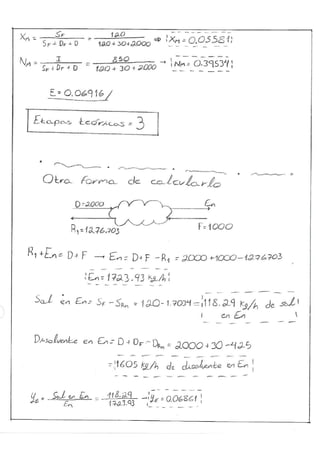 Xn = SF / SF + DF + D = 120 / 120+30+2000 ⇒ Xn = 0.05581
Nn = I / SF + DF + D = 850 / 120 + 30 + 2000 → Nn = 0.39534
E = 0.06916
Etapas teóricas = 3
Otra forma de calcularlo
D=2000 En
R1 = 1276.703 F=1000
R1 + En = D + F → En = D + F - R1 = 2000 + 1000 - 1276.703
En = 1723.93 kg/h
Sal en En = SF - SRn = 120 - 1.7034 = 118.29 kg/h de sal
en En
Disolvente en En = D + DF - DRn = 2000 + 30 - 425
= 1605 kg/h de disolvente en En
yE = Sal en En / En = 118.29 / 1723.93 yE = 0.06861